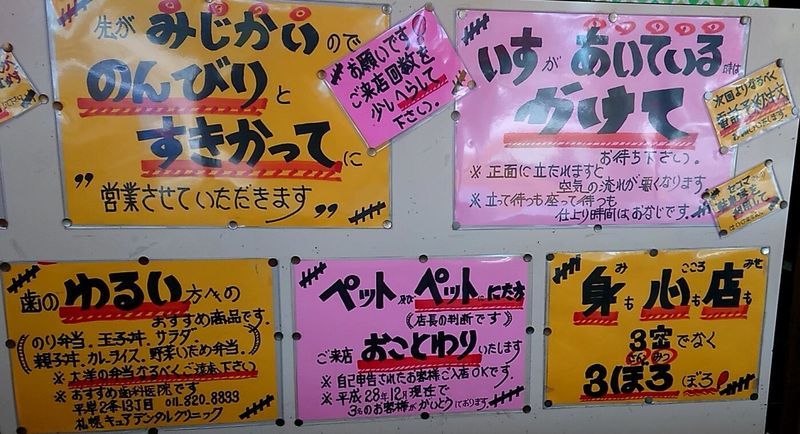 先が みじかい ので
のんびり と
すきかって に
〃 営業させていただきます 〃
お願いです。
ご来店回数を
少しへらして
下さい。
いすが あいている 時は
かけて
お待ち下さい。
※ 正面に立たれますと
空気の流れが悪くなります
※ 立って待つも座って待つも
仕上り時間はおなじです。
次回よりなるべく
お願いいたします。
歯の ゆるい 方への
おすすめ商品です。
のり弁当. 玉子丼. サラダ.
親子丼. カレーライス. 野菜いため弁当.
※ 大半の弁当なるべくご遠慮下さい
※ おすすめ歯科医院です
平岸2条13丁目 011.820.8833
札幌キュアデンタルクリニック
ペット 及び ペット に にた方
(店長の判断です)
ご来店 おことわり いたします
※ 自己申告されたお客様ご入店OKです。
※ 平成28年12月現在で
3名のお客様がかいとうしております。
身も 心も 店も
み こころ みせ
3密でなく
さん みつ
3ぼろ ぼろ!